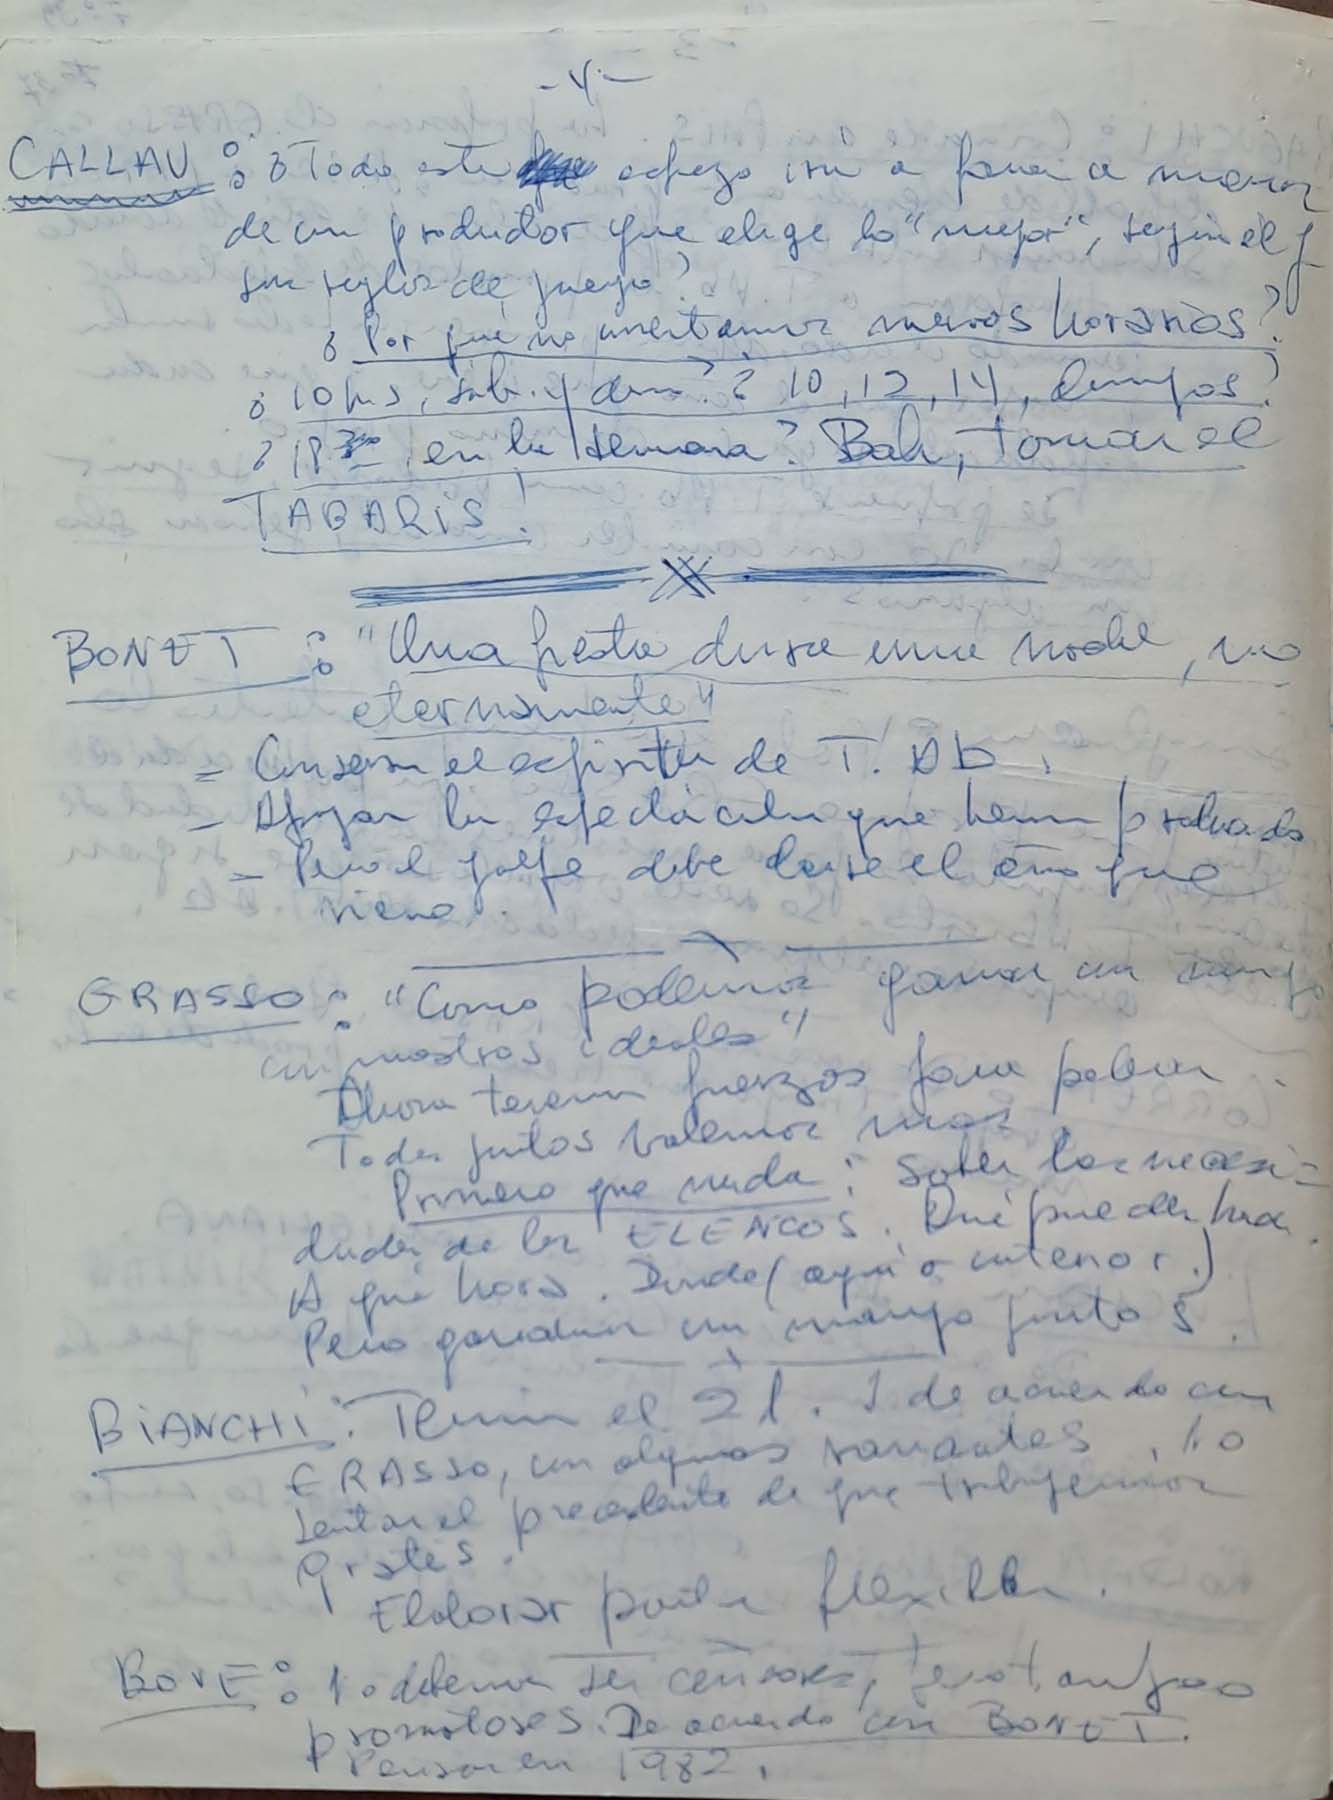 - 4 -
CALLAU: ¿Todo este esfuerzo irá a parar a manos
de un productor que elige lo "mejor", según el y
sus reglas de juego?
¿Por qué no inventamos nuevos horarios?
¿10 hs, sáb. y dom? ¿10, 12, 14, domingos?
¿18 en la semana? Bah, tomar el
TABARIS!
BONET: "Una fiesta dura una noche, no
eternamente"
= Conservar el espíritu de T. Ab.
- Apoyar los espectáculos que hemos probado
- Pero el golpe debe darse el año que
viene.
GRASSO: "Como podemos ganar un mango
con nuestros ideales"
Ahora tenemos fuerzas para pelear.
Todos juntos valemos más.
Primero que nada: Saber las necesi=
dades de los ELENCOS. Qué pueden hacer.
A qué hora. Donde (aquí o interior.)
Pero ganar un mango juntos.
BIANCHI: Tenemos el 21. de acuerdo con
GRASSO, con algunas variantes. No
sentar el precedente de que trabajemos
gratis.
Elaborar pautas flexibles.
BOVE: No debemos ser censores, pero tampoco
promotores. De acuerdo con BONET.
Pensar en 1982.